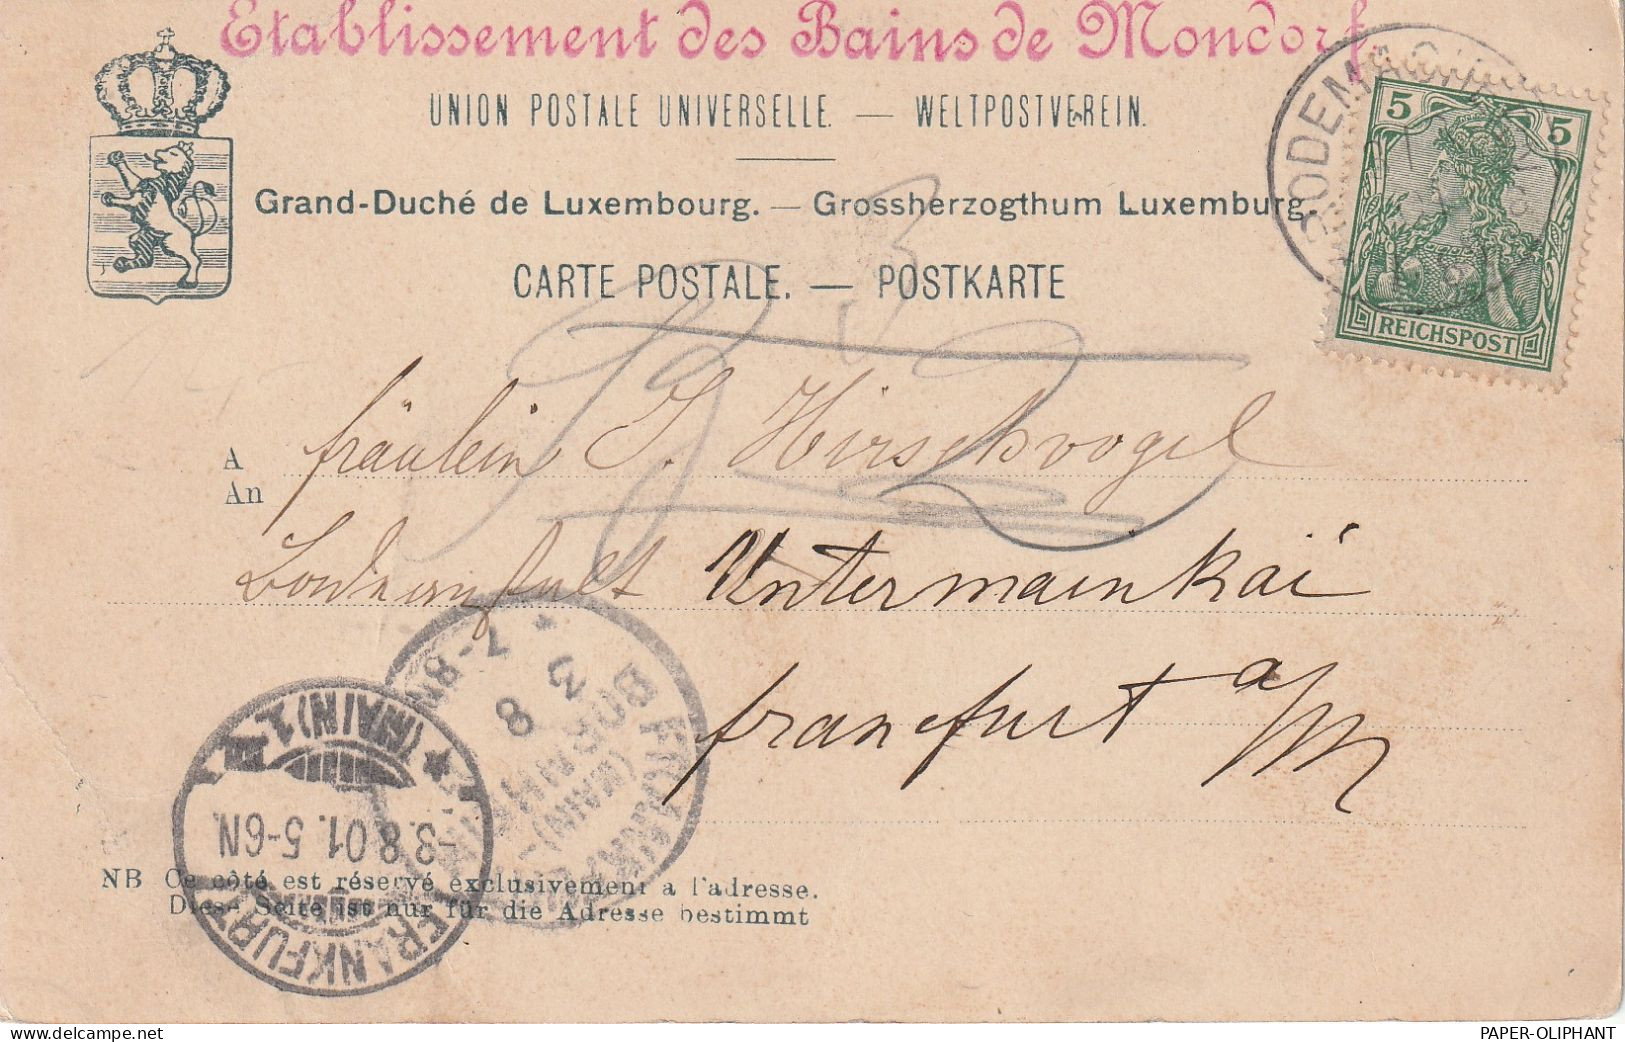 Etablissement des Bains de Mondorf.
UNION POSTALE UNIVERSELLE. — WELTPOSTVEREIN.
Grand-Duché de Luxembourg. — Grossherzogthum Luxemburg.
CARTE POSTALE. — POSTKARTE
RODEMACHERN
5 5
REICHSPOST
A fräulein S. Hirschvogel
An
Untermainkai
francfurt a/M
7-8N
3 8
BORNHEIM
FRANKFURT (MAIN)-
FRANKFURT
(MAIN) 1.
-3.8.01. 5-6N.
NB Ce côté est réservé exclusivement a l'adresse.
Diese Seite ist nur für die Adresse bestimmt
PAPER-OLIPHANT